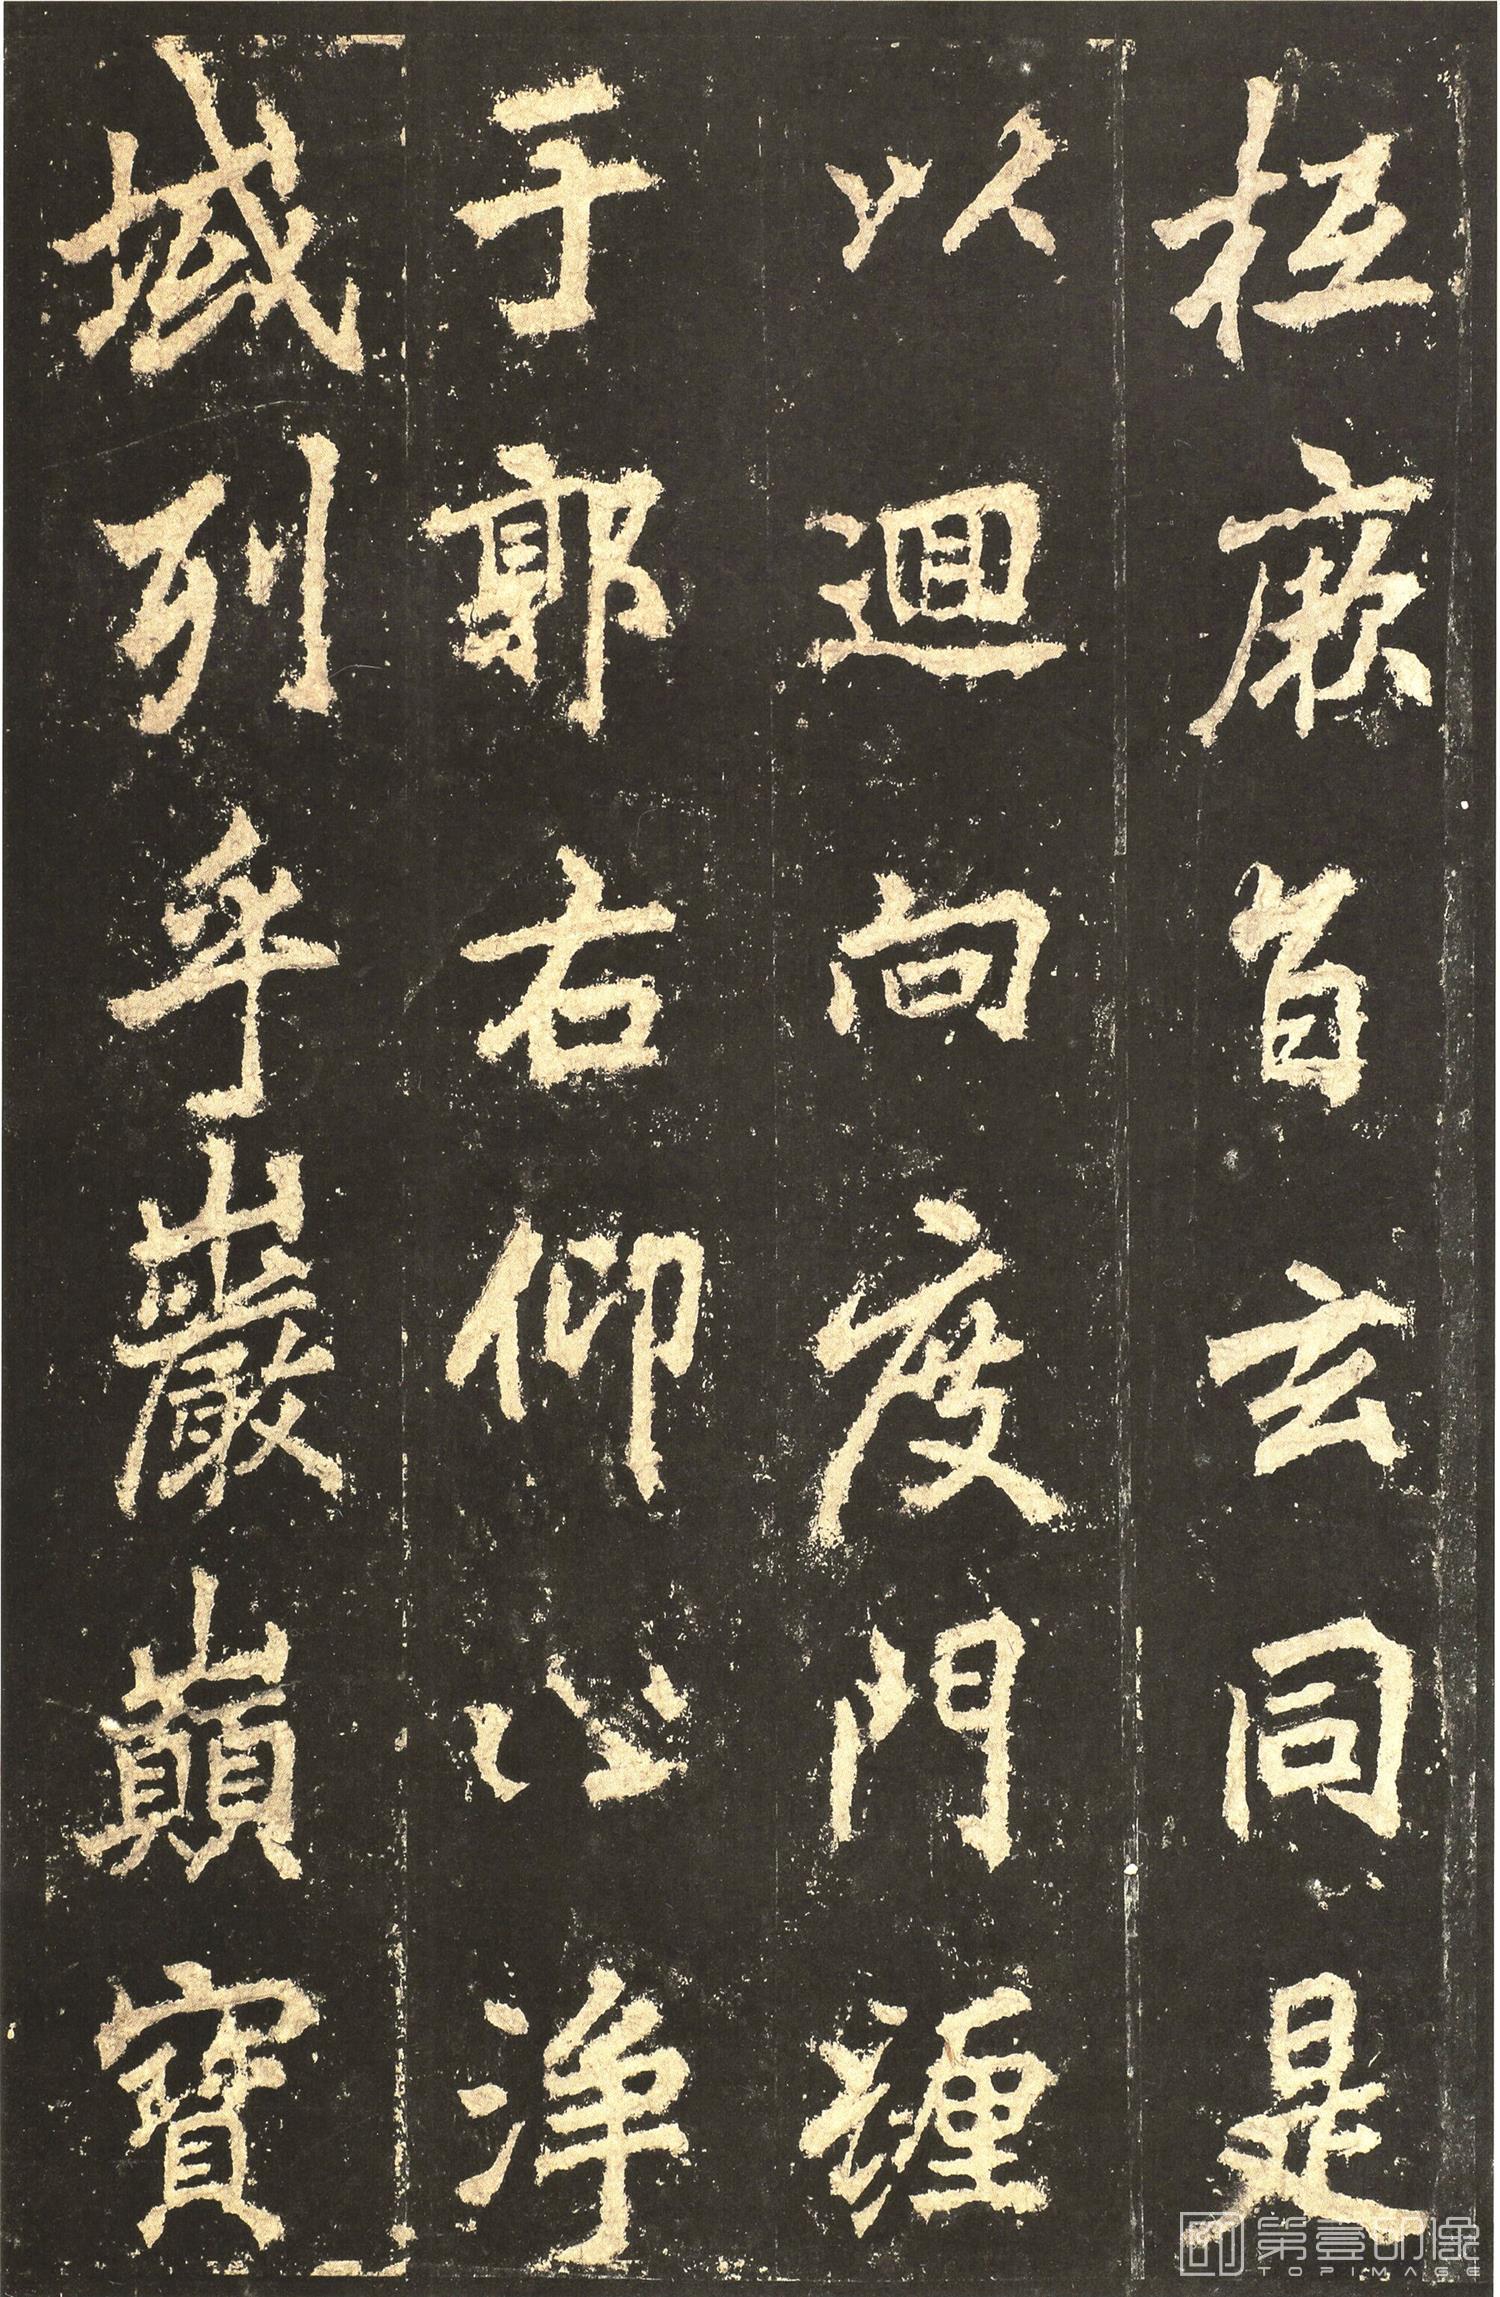 厥旨玄同是
以迴向度門壥
于郭右仰止淨
域列乎巖巔寶
第壹印像
TOPIMAGE